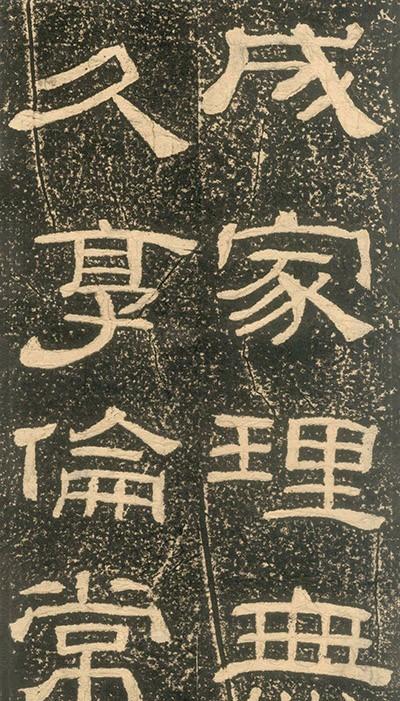 成家理無
久享倫常